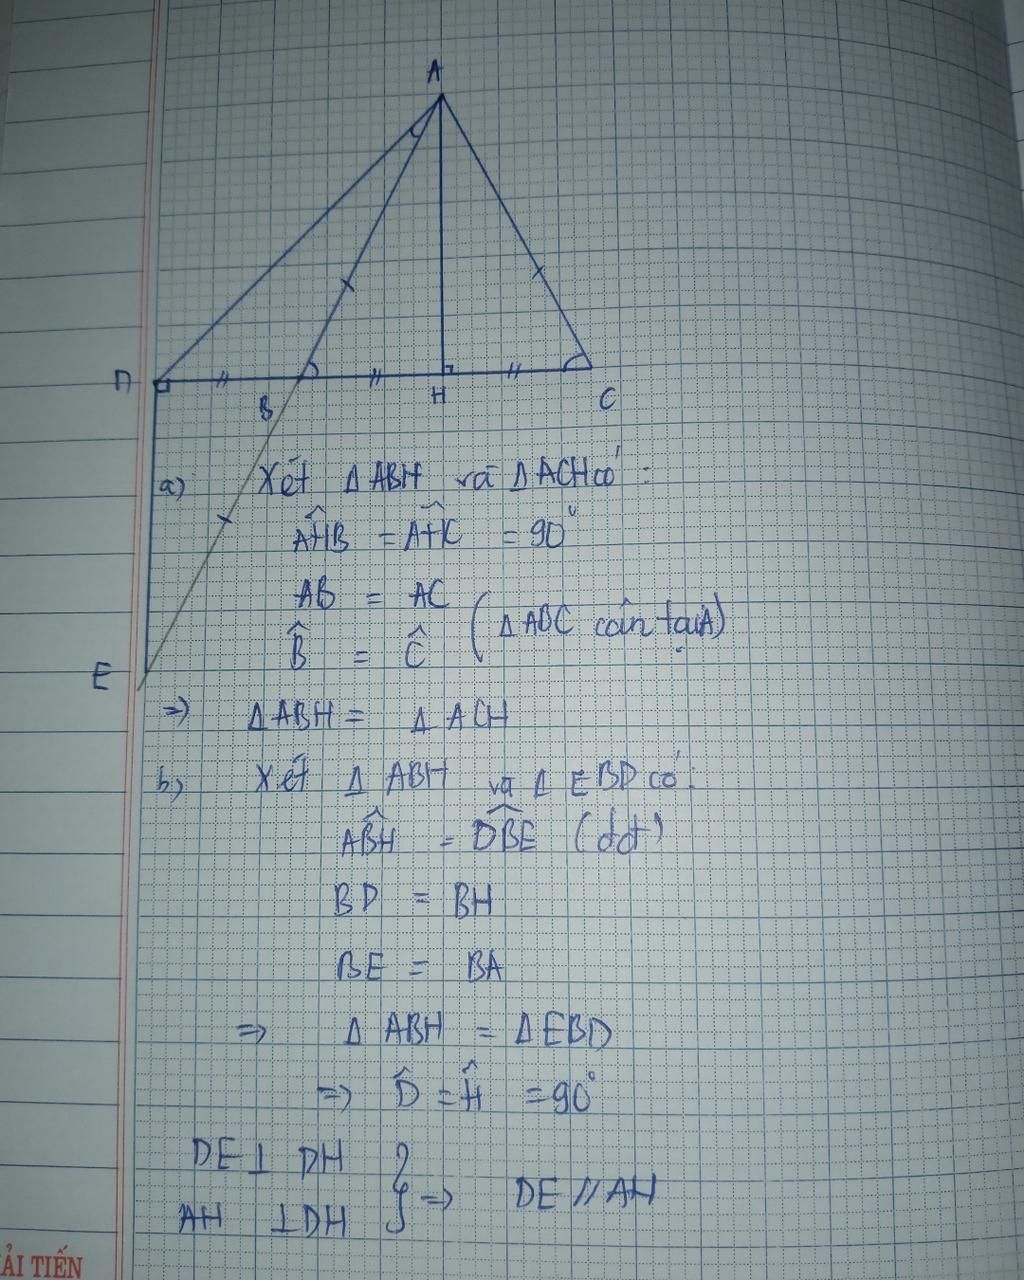 A
D
B
H
C
E
a) Xét Δ ABH và Δ ACH có :
AĤB = AĤC = 90°
AB = AC
B̂ = Ĉ ( Δ ABC cân tại A)
=> Δ ABH = Δ ACH
b) Xét Δ ABH và Δ EBD có :
AB̂H = DB̂E (đđ)
BD = BH
BE = BA
=> Δ ABH = Δ EBD
=> D̂ = Ĥ = 90°
DE ⊥ DH
AH ⊥ DH } => DE // AH
ẢI TIẾN